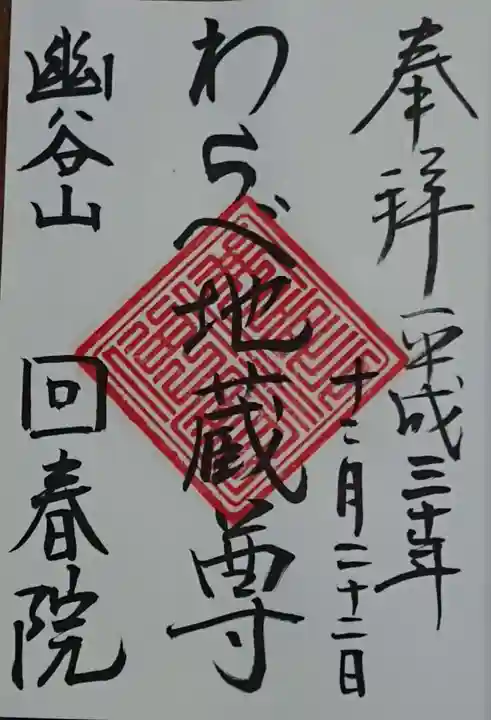 奉拝 平成三十年
十二月二十二日
わらべ地蔵尊
幽谷山
回春院